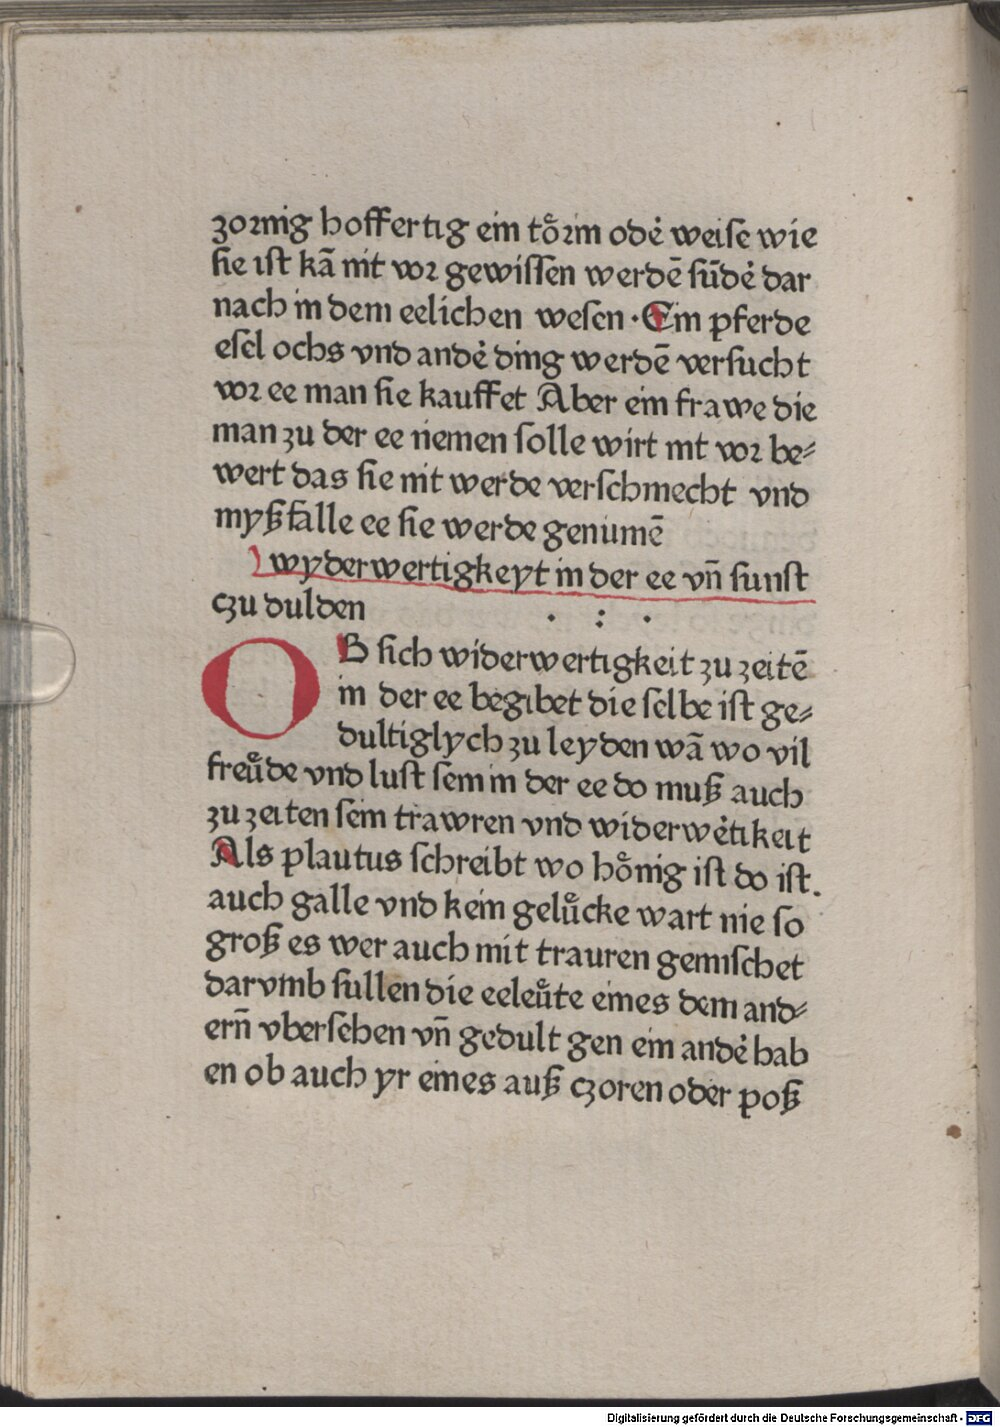 zornig hoffertig ein toͤrin odeʼ weise wie
sie ist kā nit vor gewissen werdē sūdeʼ dar
nach in dem eelichen wesen · Ein pferde
esel ochs vnd andeʼ ding werdē versucht
vor ee man sie kauffet Aber ein frawe die
man zu der ee nemen solle wirt nit vor be⸗
wert das sie nit werde verschmecht vnd
myßfalle ee sie werde genumē
wyderwertigkeyt in der ee vn̄ sunst
czu dulden · : ·
OB sich widerwertigkeit zu zeitē
in der ee begibet die selbe ist ge⸗
dultiglych zu leyden wā wo vil
freuͦde vnd lust sein in der ee do muß auch
zu zeiten sein trawren vnd widerweʼtikeit
Als plautus schreibt wo hoͤnig ist do ist.
auch galle vnd kein geluͦcke wart nie so
groß es wer auch mit trauren gemischet
darvmb sullen die eeleuͦte eines dem and⸗
ern̄ vbersehen vn̄ gedult gen ein andeʼ hab
en ob auch yr eines auß czoren oder poß
Digitalisierung gefördert durch die Deutsche Forschungsgemeinschaft - DFG